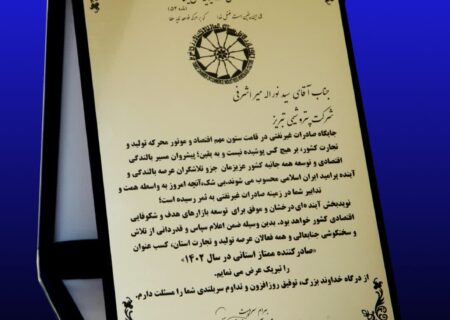 (ماده ۵۲)
جناب آقای سید نوراله میراشرفی
شرکت پتروشیمی تبریز
جایگاه صادرات غیرنفتی در قامت ستون مهم اقتصاد و موتور محرکه تولید و
تجارت کشور، بر هیچ کس پوشیده نیست و به یقین؛ پیشروان مسیر بالندگی
اقتصادی و توسعه همه جانبه کشور عزیزمان جزو تلاشگران عرصه بالندگی و
آینده پرامید ایران اسلامی محسوب می شوند.بی شک،آنچه امروز به واسطه همت و
تدابیر شما در زمینه صادرات غیرنفتی به ثمر رسیده است؛
نویدبخش آینده ای درخشان و موفق برای توسعه بازارهای هدف و شکوفایی
اقتصادی کشور خواهد بود. بدین وسیله ضمن اعلام سپاس و قدردانی از تلاش
و سختکوشی جنابعالی و همه فعالان عرصه تولید و تجارت استان، کسب عنوان
«صادرکننده ممتاز استانی در سال ۱۴۰۲»
را تبریک عرض می نمایم.
از درگاه خداوند بزرگ، توفیق روزافزون و تداوم سربلندی شما را مسئلت دارم.